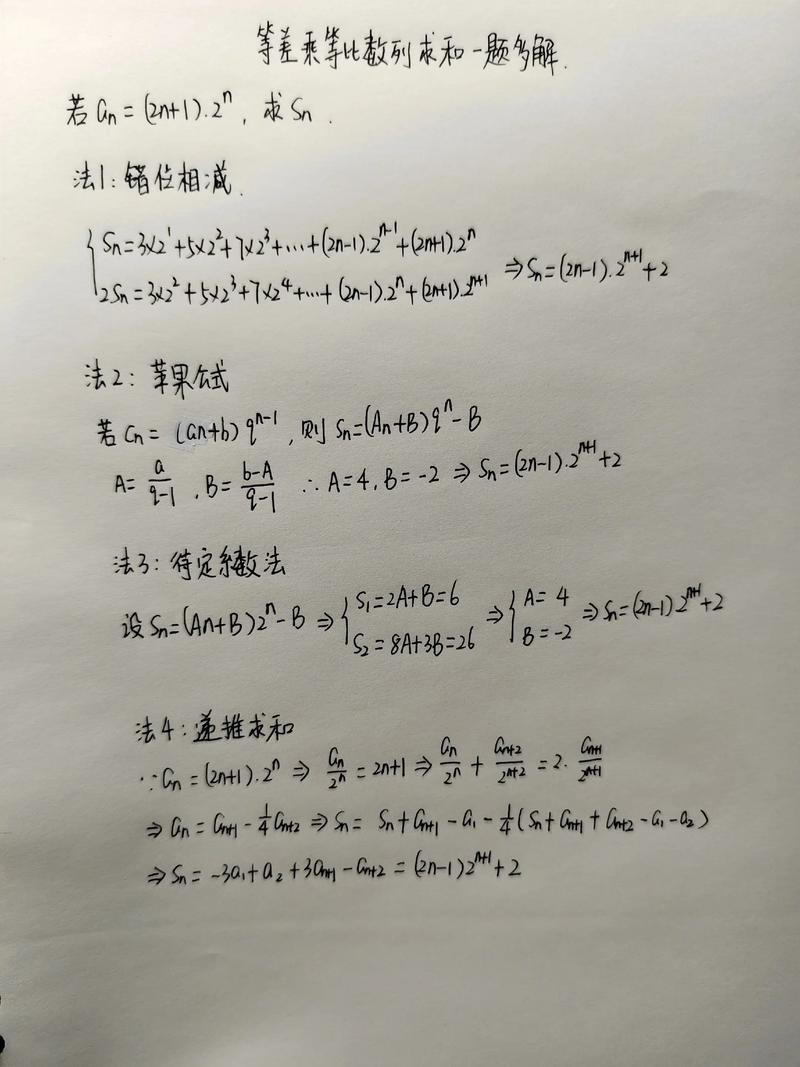 等差乘等比数列求和一题多解.
若 aₙ = (2n+1)·2ⁿ, 求 Sₙ.
法1: 错位相减.
{ Sₙ = 3×2¹+5×2²+7×2³+⋯+(2n-1)·2ⁿ⁻¹+(2n+1)·2ⁿ
2Sₙ = 3×2²+5×2³+7×2⁴+⋯+(2n-1)·2ⁿ+(2n+1)·2ⁿ⁺¹ ⇒ Sₙ = (2n-1)·2ⁿ⁺¹+2
法2: 苹果公式
若 Cₙ = (an+b)qⁿ⁻¹, 则 Sₙ=(An+B)qⁿ-B
A = a/(q-1), B = (b-A)/(q-1) ∴ A=4, B=-2 ⇒ Sₙ=(2n-1)·2ⁿ⁺¹+2
法3: 待定系数法
设 Sₙ=(An+B)2ⁿ-B ⇒ { S₁=2A+B=6 S₂=8A+3B=26 ⇒ { A=4 B=-2 ⇒ Sₙ=(2n-1)2ⁿ⁺¹+2
法4: 递推求和
∵ aₙ = (2n+1)·2ⁿ ⇒ aₙ/2ⁿ = 2n+1 ⇒ aₙ/2ⁿ + aₙ₊₂/2ⁿ⁺² = 2·aₙ₊₁/2ⁿ⁺¹
⇒ aₙ = aₙ₊₁ - ¼aₙ₊₂ ⇒ Sₙ = Sₙ+aₙ₊₁-a₁-¼(Sₙ+aₙ₊₁+aₙ₊₂-a₁-a₂)
⇒ Sₙ = -3a₁+a₂+3aₙ₊₁-aₙ₊₂ = (2n-1)2ⁿ⁺¹+2